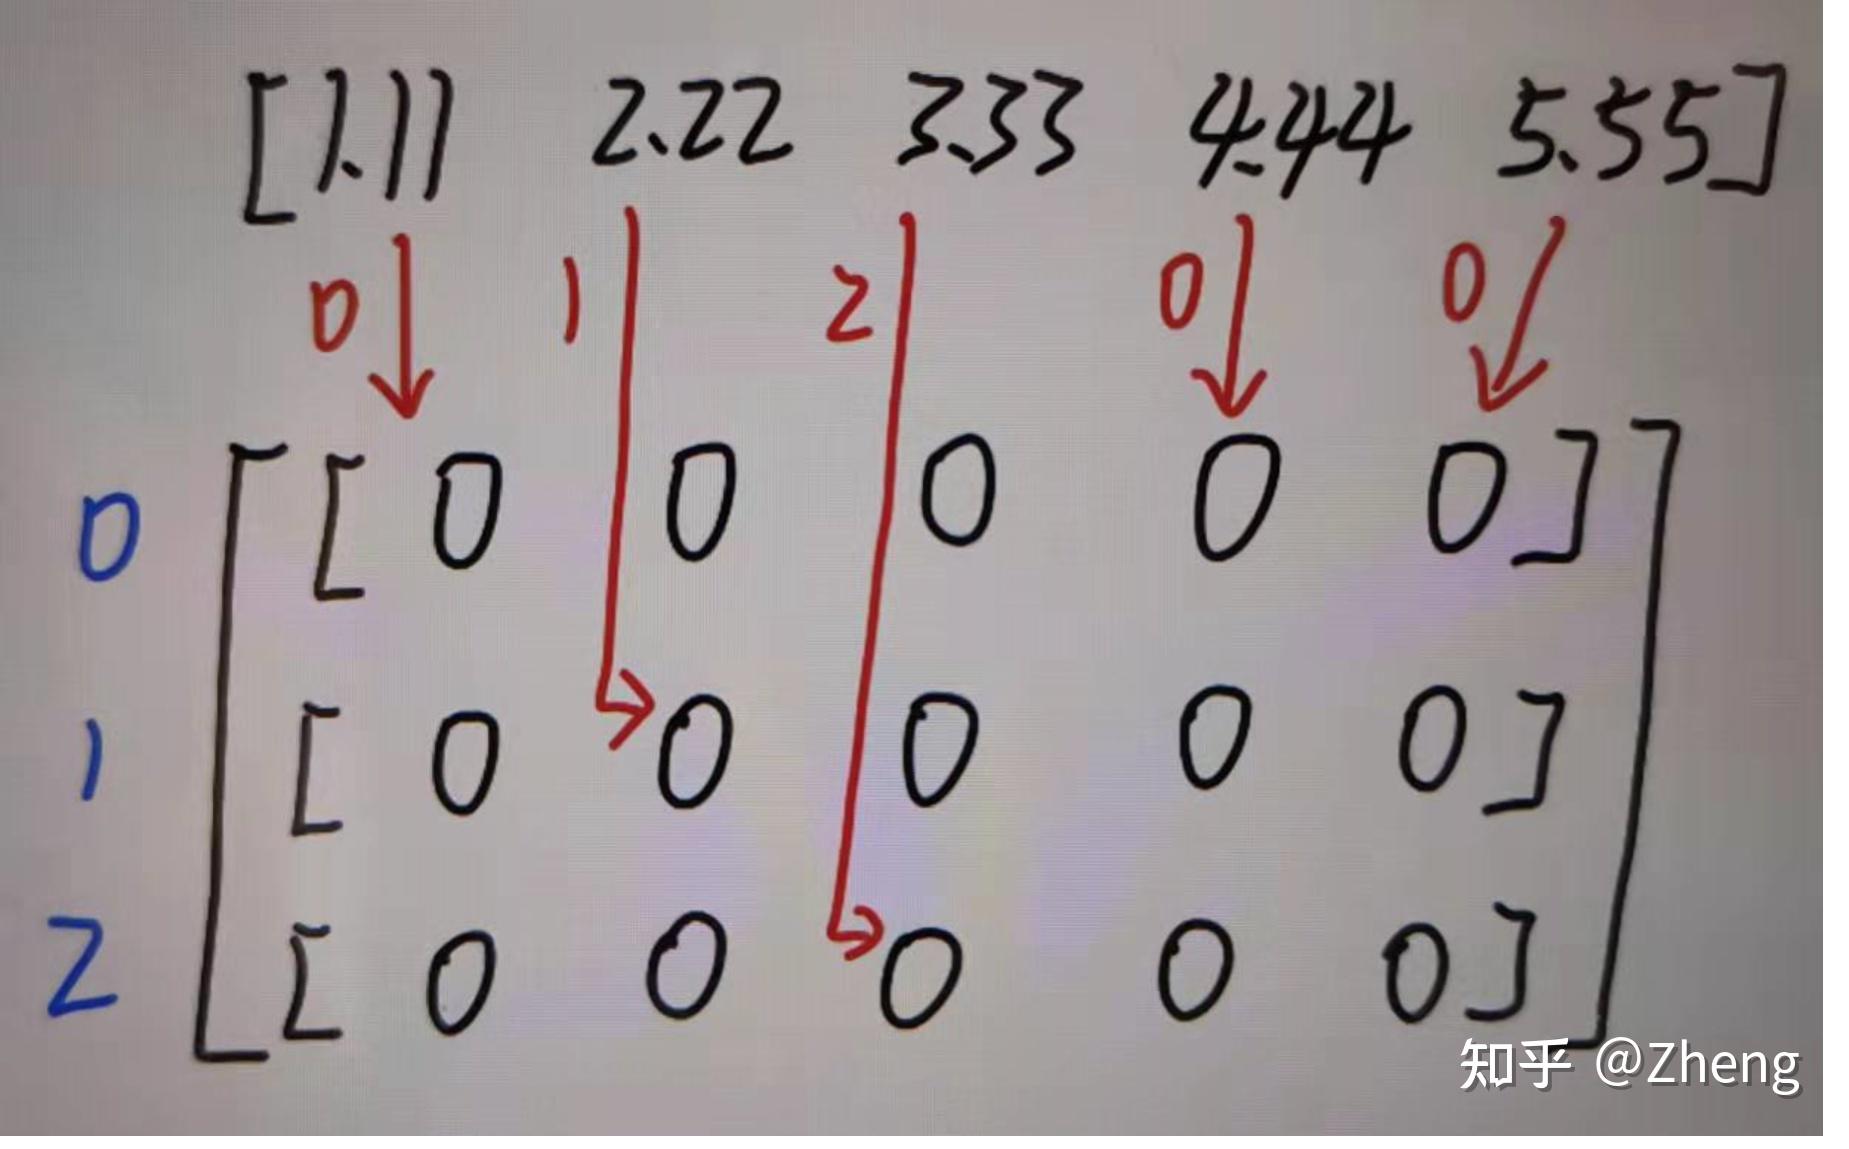 [1.11 2.22 3.33 4.44 5.55]
0 1 2 0 0
0 [[0 0 0 0 0]
1 [0 0 0 0 0]
2 [0 0 0 0 0]]
知乎 @Zheng